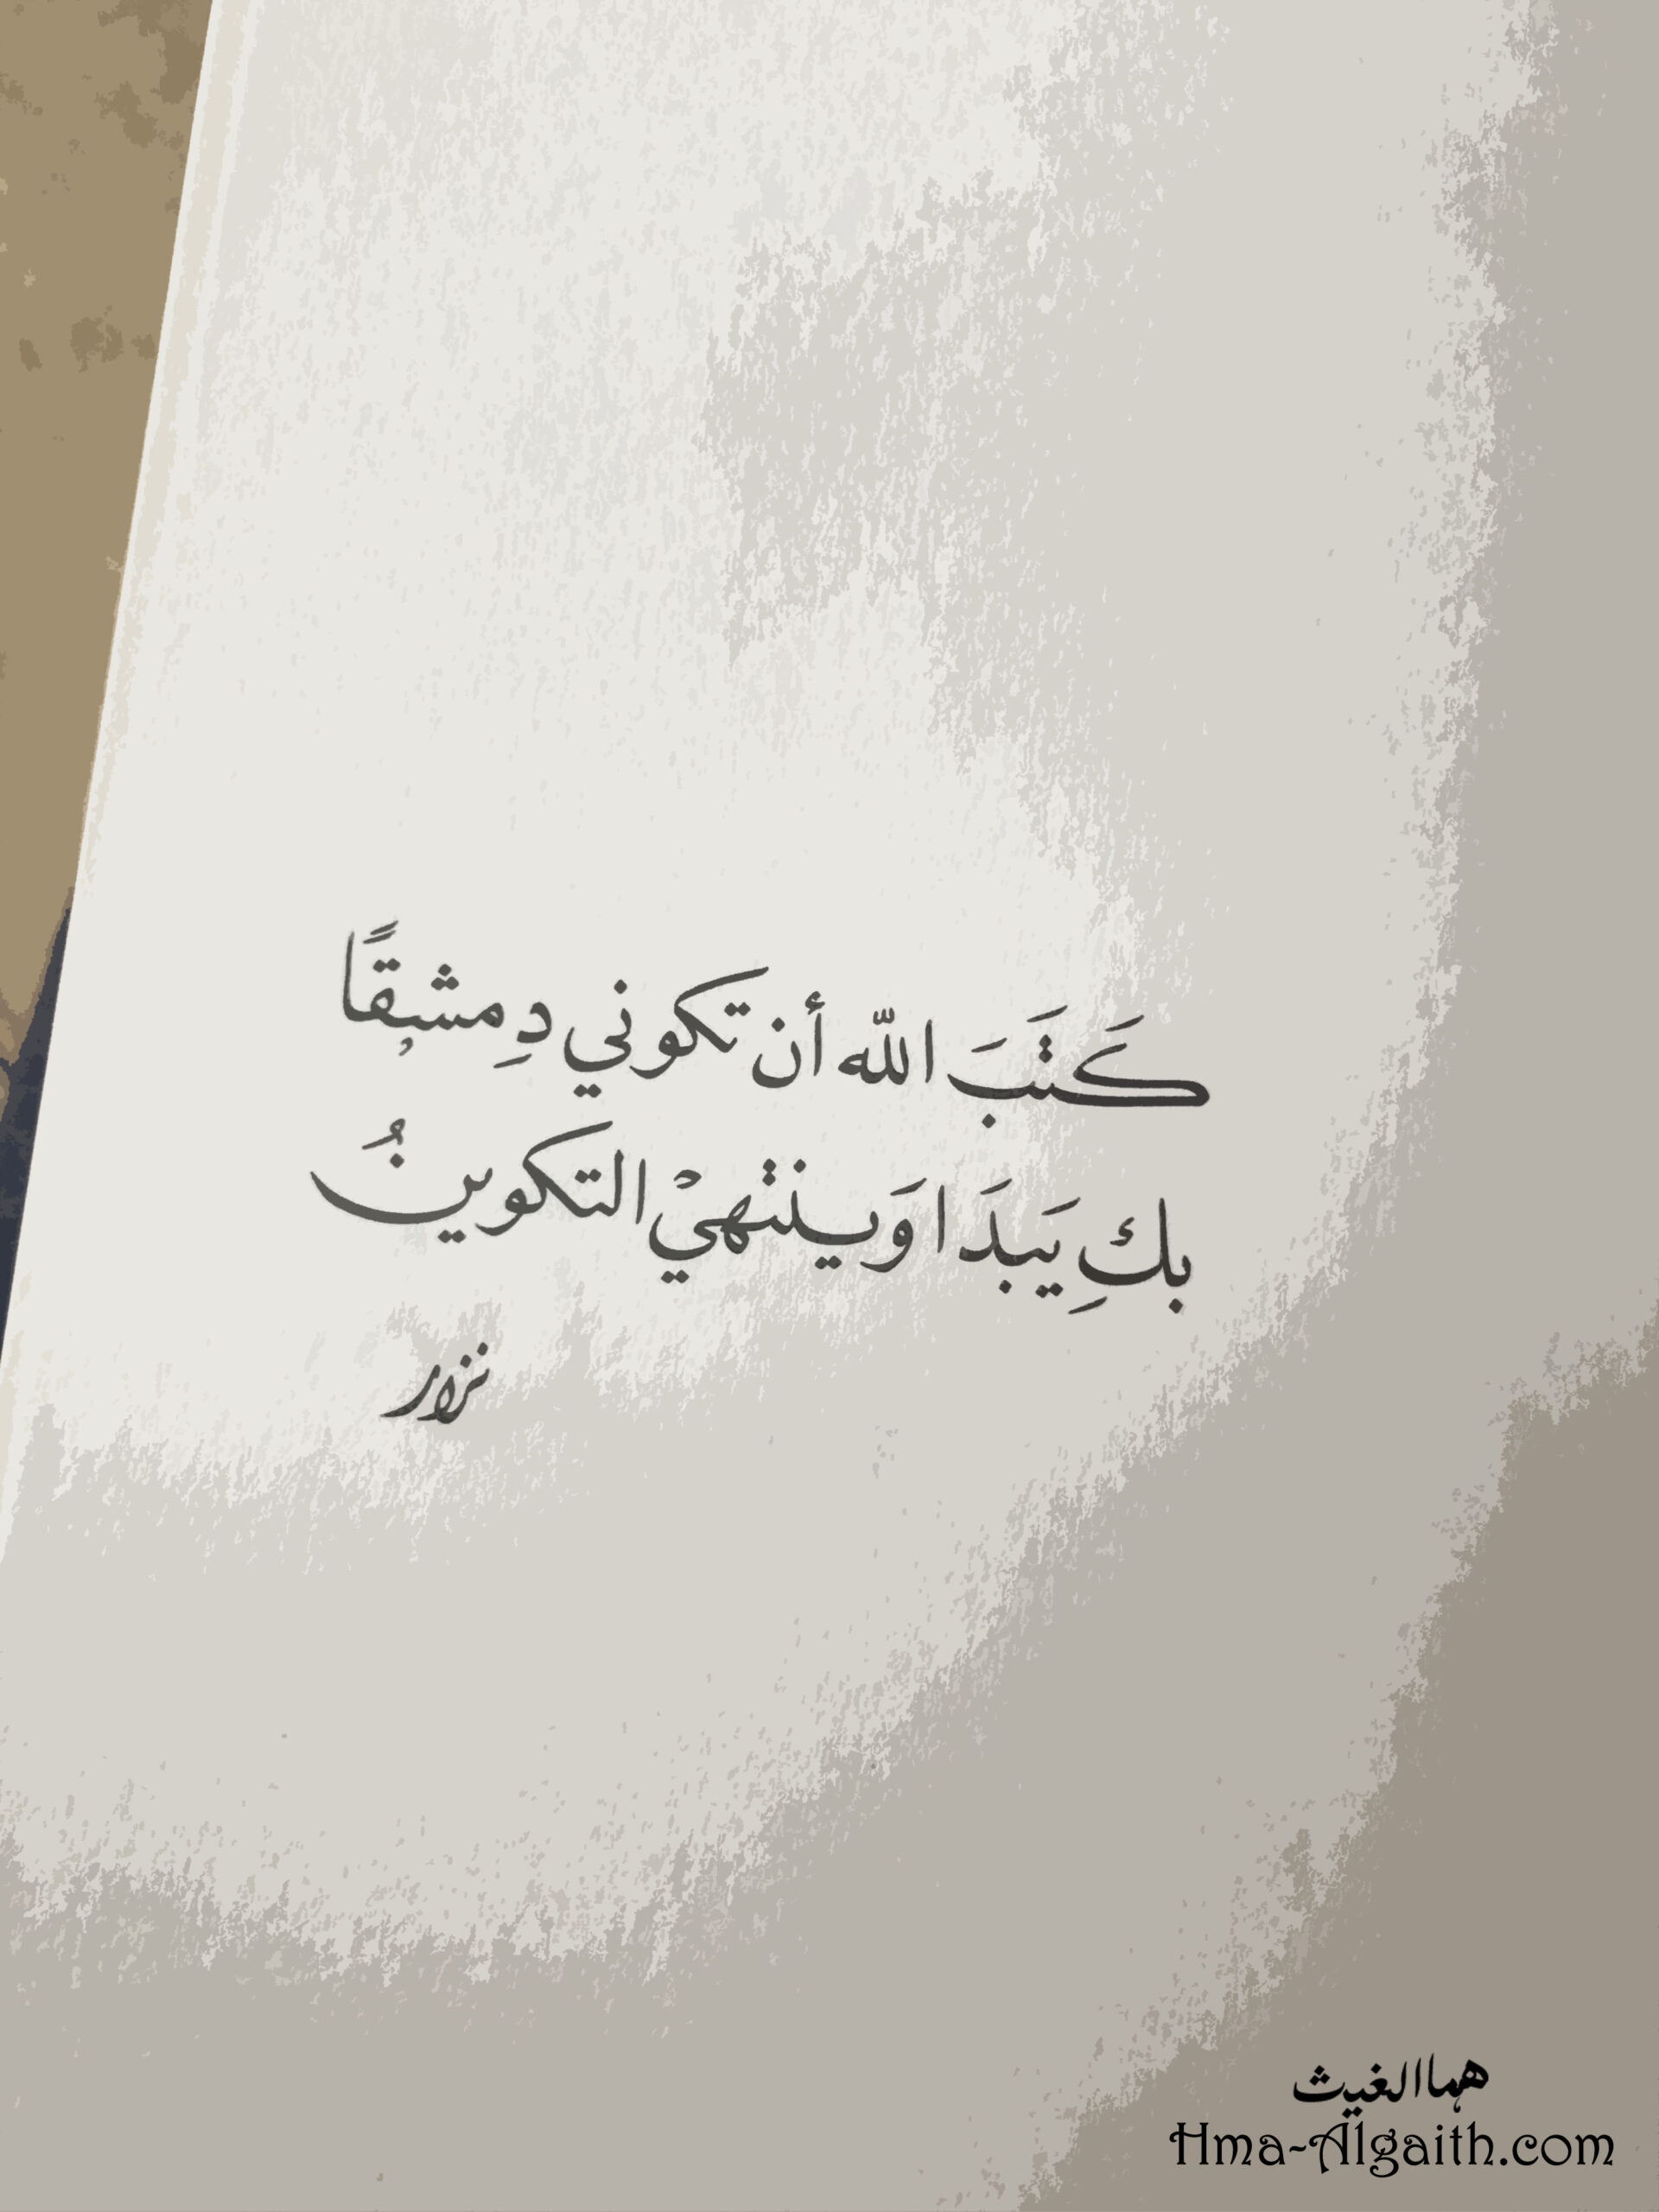 كَتَبَ الله أن تكوني دِمشقًا
بكِ يَبدَا وَينتهيْ التكوينُ
نزار
هما الغيث
Hma-Algaith.com